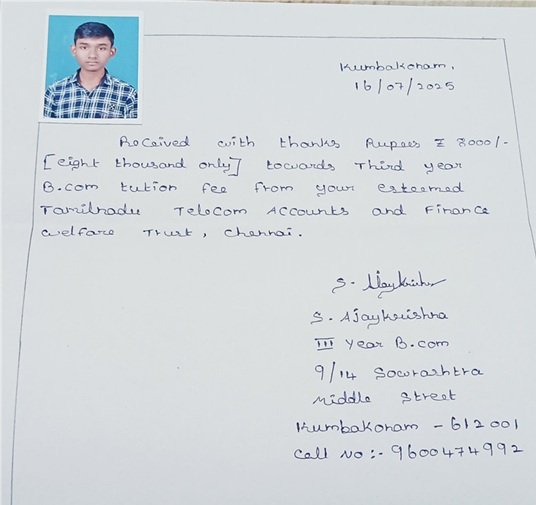 Kumbakonam,
16/07/2025
Received with thanks Rupees ₹ 8000/-
[eight thousand only] towards Third year
B.com tution fee from your esteemed
Tamilnadu Telecom Accounts and Finance
welfare Trust, Chennai.
S. Ajaykrishna
S. Ajaykrishna
III Year B.com
9/14 Sowrashtra
Middle Street
Kumbakonam - 612 001
Cell No :- 9600474992